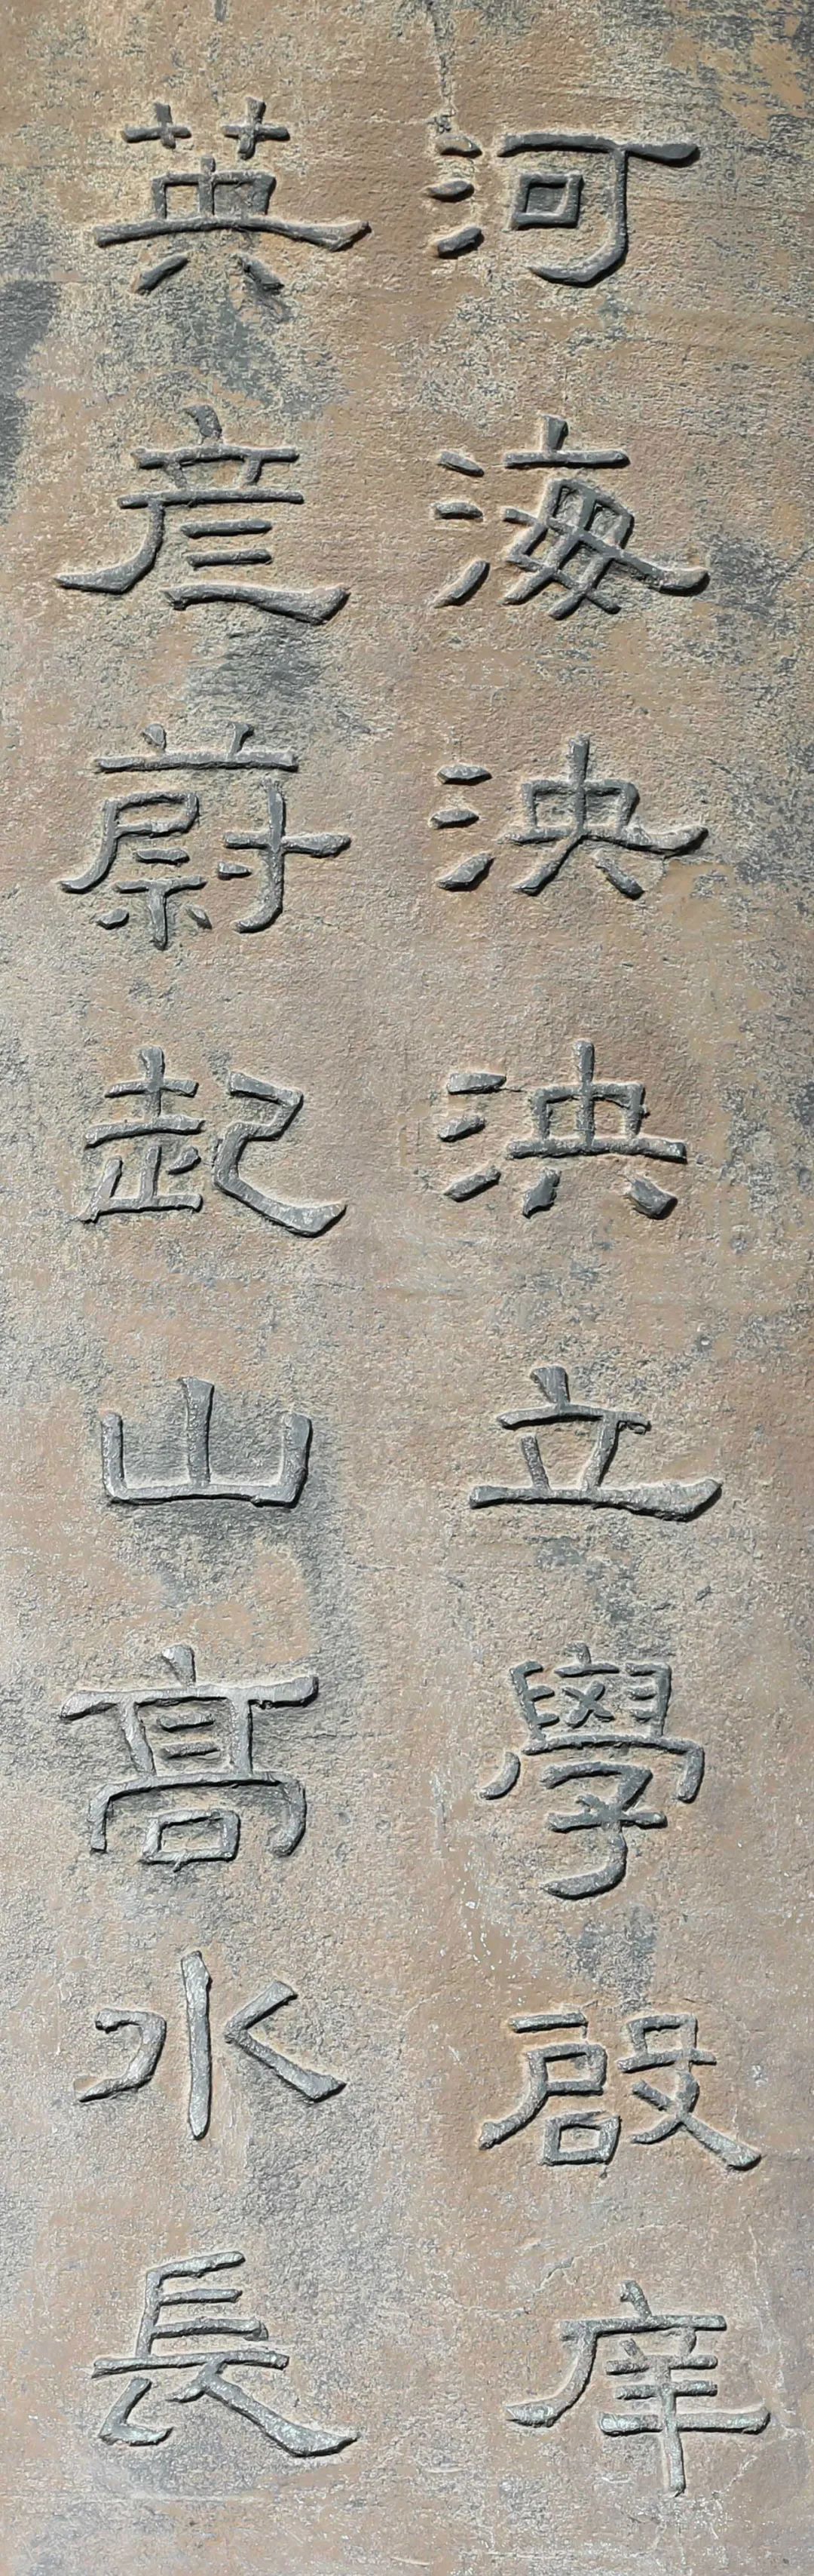 河海泱泱立學啟庠
英彦蔚起山高水長